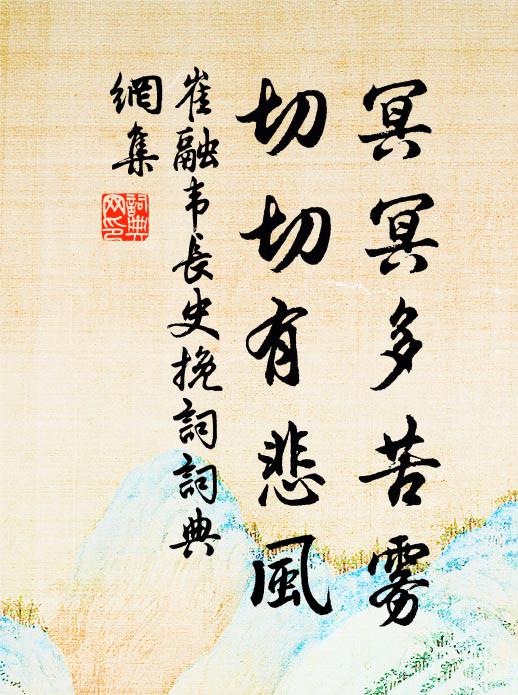 冥冥多苦雾
切切有悲風
崔融韦長史挽詞詞典
網集
詞典
网印